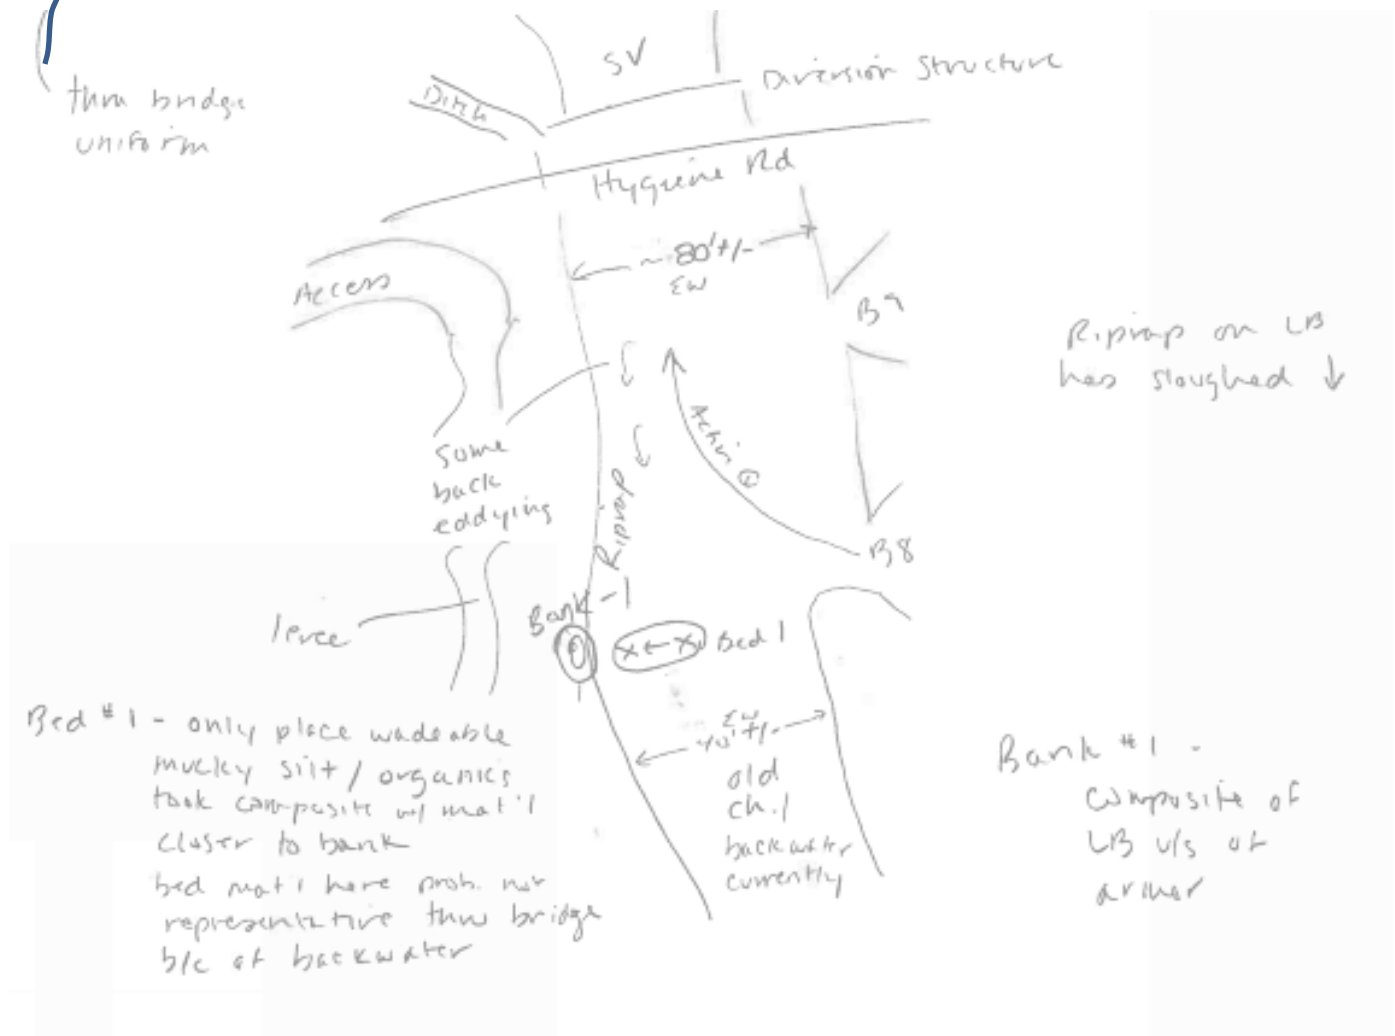 SV
Diversion Structure
Ditch
thru bridge
uniform
Hygiene Rd
~ 80'+/-
EW
Access
B9
Riprap on LB
has sloughed ↓
Active ℄
Some
back
eddying
Riprap
B8
levee
Bank-1
x←x Bed 1
EW
40'+/-
old
ch.l
backwater
currently
Bed #1 - only place wadeable
mucky silt/organics
took composite w/ mat'l
closer to bank
bed mat'l here prob. not
representative thru bridge
b/c of backwater
Bank #1 -
composite of
LB u/s of
armor